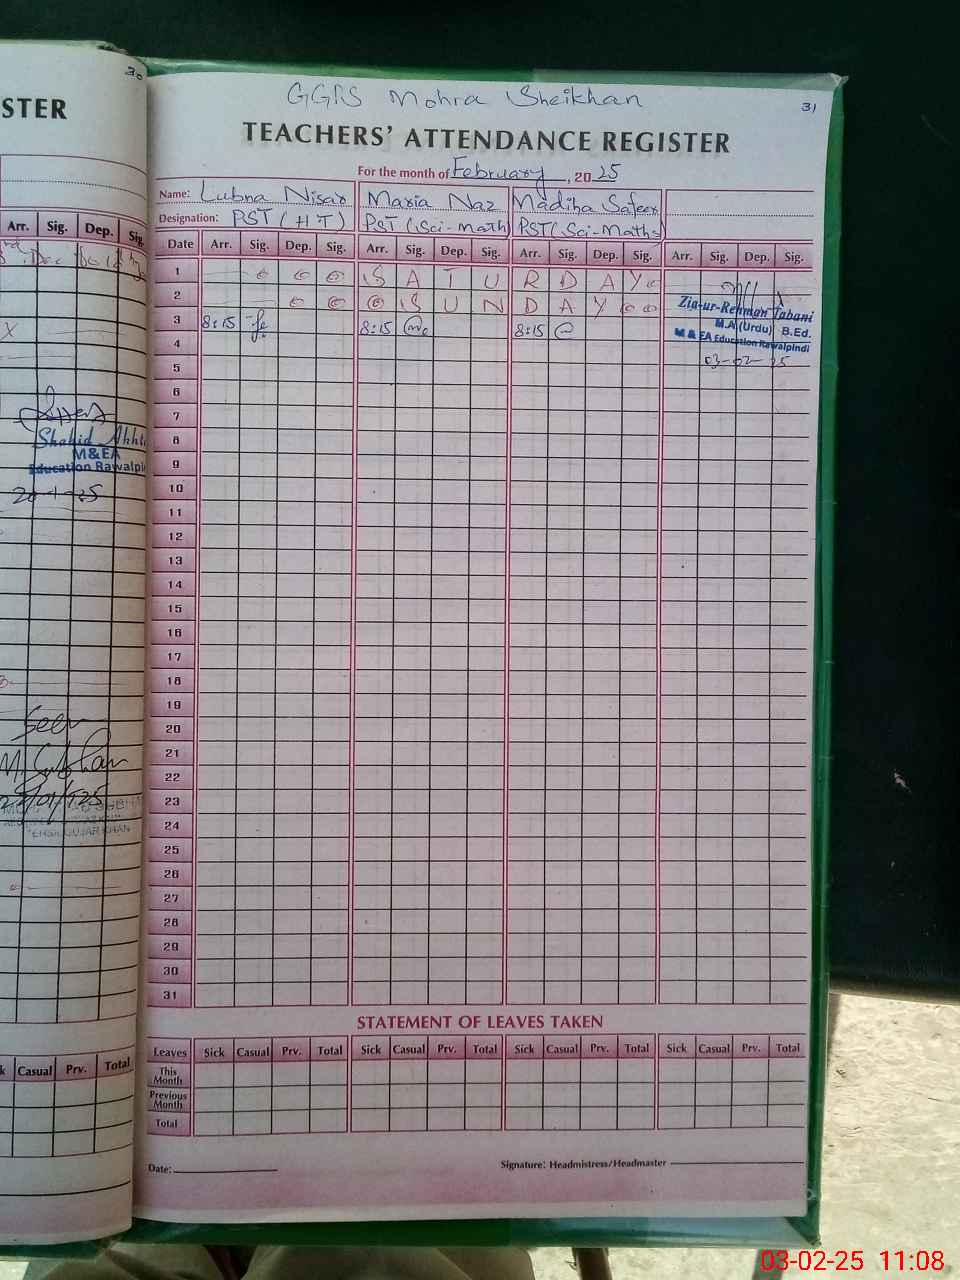 30
STER
Arr. Sig. Dep. Sig.
X
Shahid Akht
M&EA
Education Rawalpi
20-1-25
Seen
TEHSIL GUJAR KHAN
k Casual Prv. Total
GGPS Mohra Sheikhan
31
TEACHERS' ATTENDANCE REGISTER
For the month of February, 2025
Name: Lubna Nisar Maria Naz Madiha Safeer
Designation: PST (HT) PST (Sci-Math) PST (Sci-Maths)
Date Arr. Sig. Dep. Sig. Arr. Sig. Dep. Sig. Arr. Sig. Dep. Sig. Arr. Sig. Dep. Sig.
1 S A T U R D A Y
2 S U N D A Y
3 8:15 8:15 8:15
Zia-ur-Rehman Tabani
M.A (Urdu) B.Ed.
M & EA Education Rawalpindi
03-02-25
4
5
6
7
8
9
10
11
12
13
14
15
16
17
18
19
20
21
22
23
24
25
26
27
28
29
30
31
STATEMENT OF LEAVES TAKEN
Leaves Sick Casual Prv. Total Sick Casual Prv. Total Sick Casual Prv. Total Sick Casual Prv. Total
This
Month
Previous
Month
Total
Date:
Signature: Headmistress/Headmaster
03-02-25 11:08